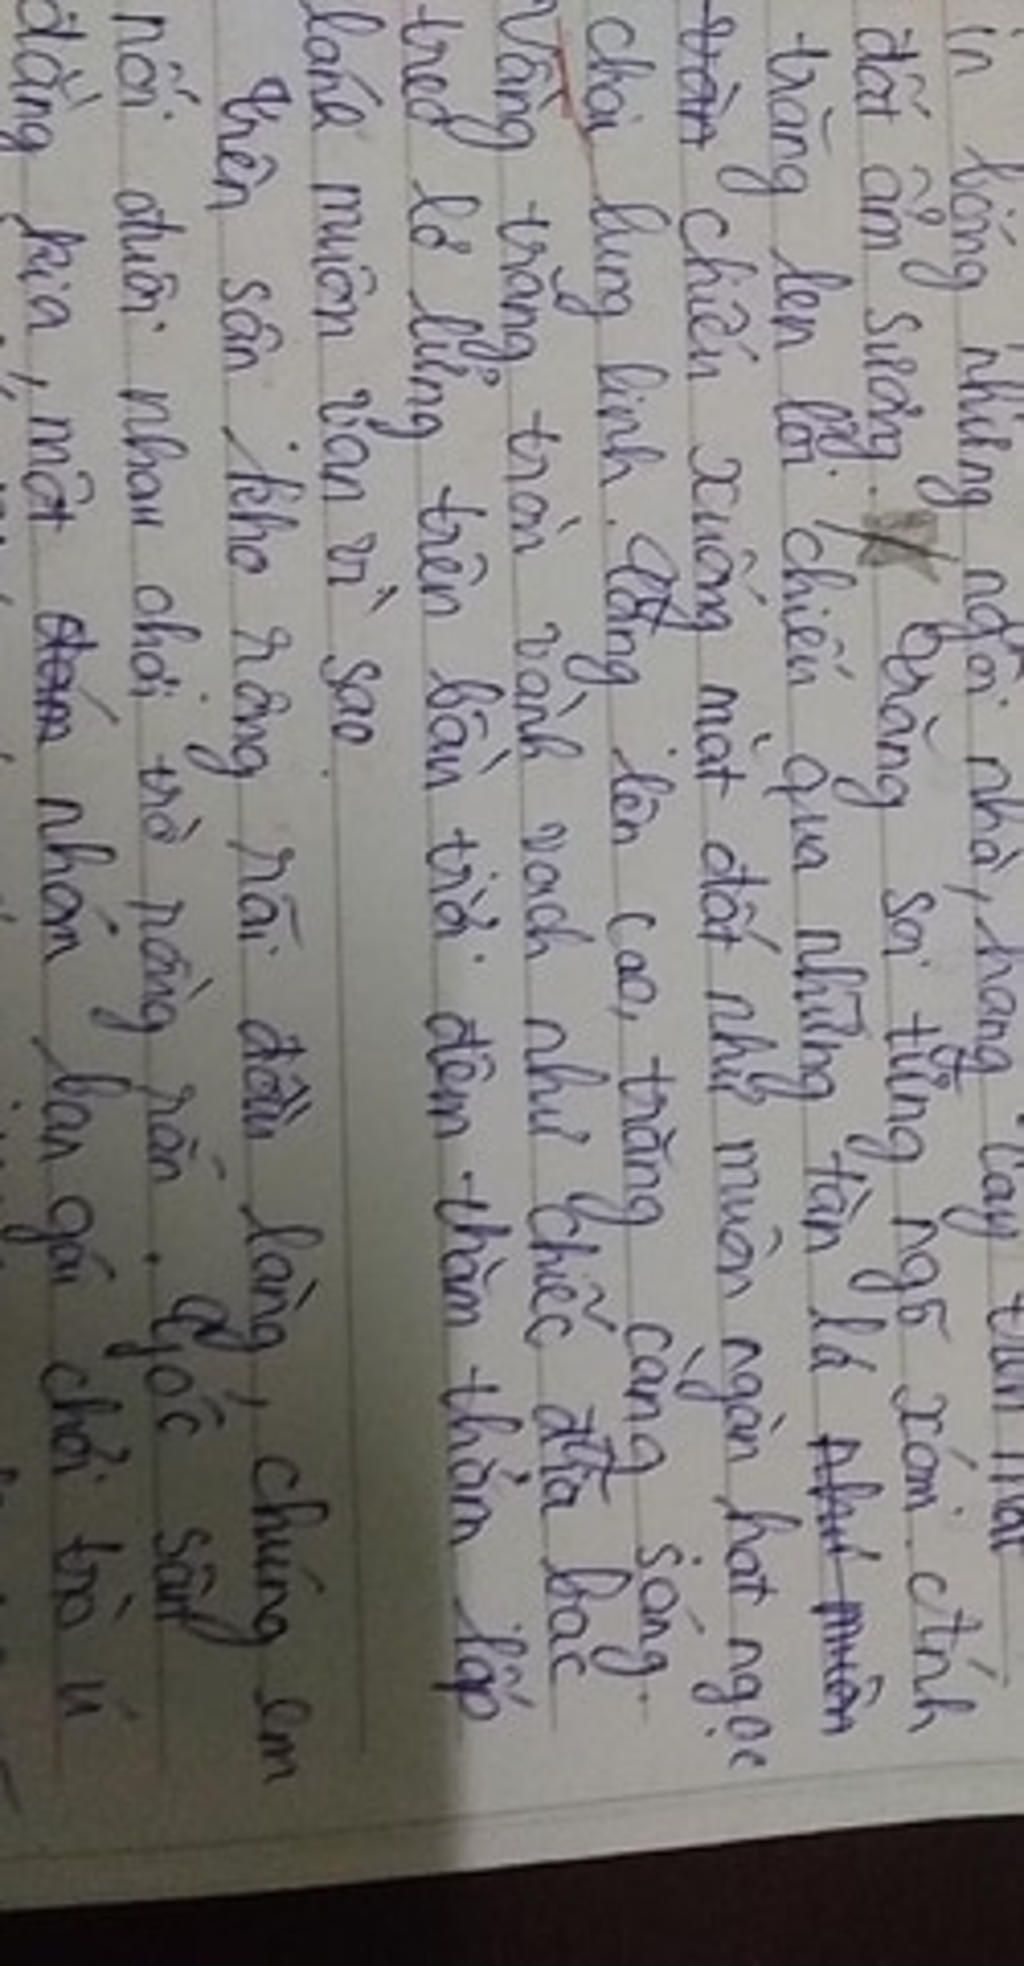 in bóng những ngôi nhà, hàng cây trên mặt
đất ẩm sương. Trăng soi từng ngõ xóm. Ánh
trăng len lỏi chiếu qua những tán lá như muôn
vàn chiếu xuống mặt đất như muôn ngàn hạt ngọc
chơi lung linh. Càng lên cao, trăng càng sáng.
Vầng trăng tròn vành vạch như chiếc đĩa bạc
treo lơ lửng trên bầu trời đêm thăm thẳm lấp
lánh muôn vàn vì sao
Trên sân kho rộng rãi đầu làng, chúng em
nối đuôi nhau chơi trò rồng rắn. Góc sân
đằng kia, một đám nhóm bạn gái chơi trò ú